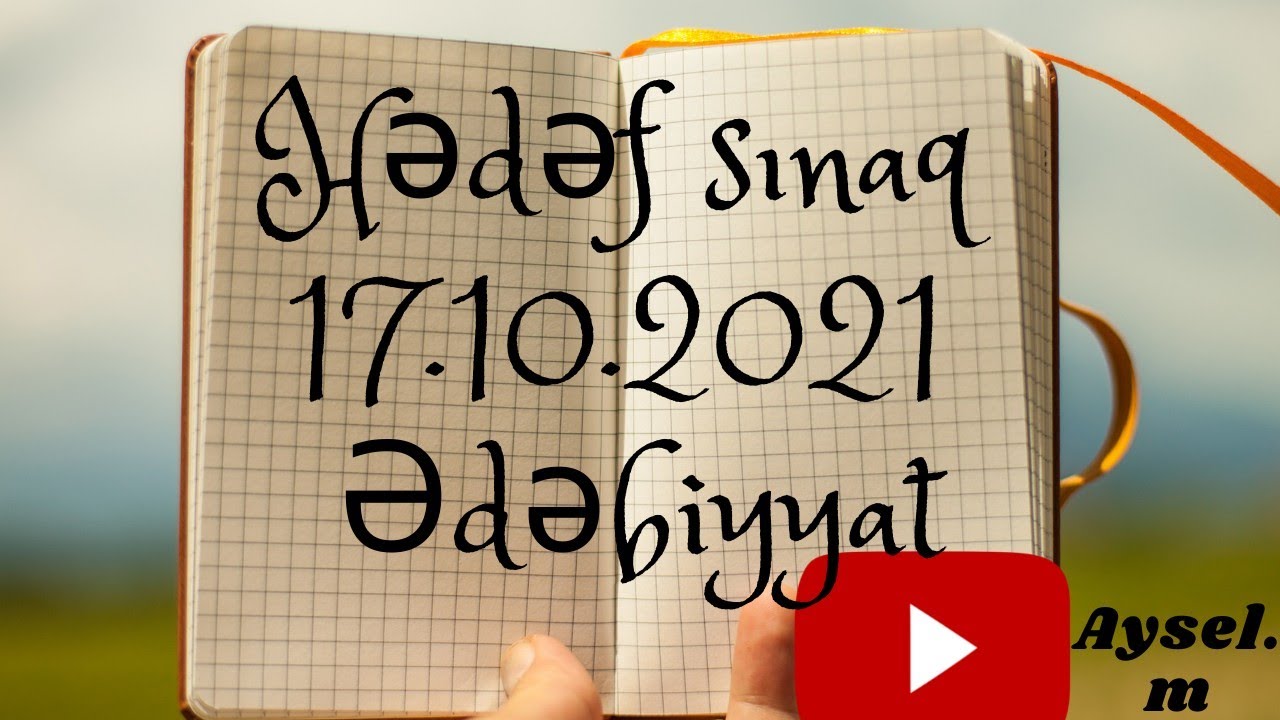 Hədəf sınaq
17.10.2021
Ədəbiyyat
Aysel.
m